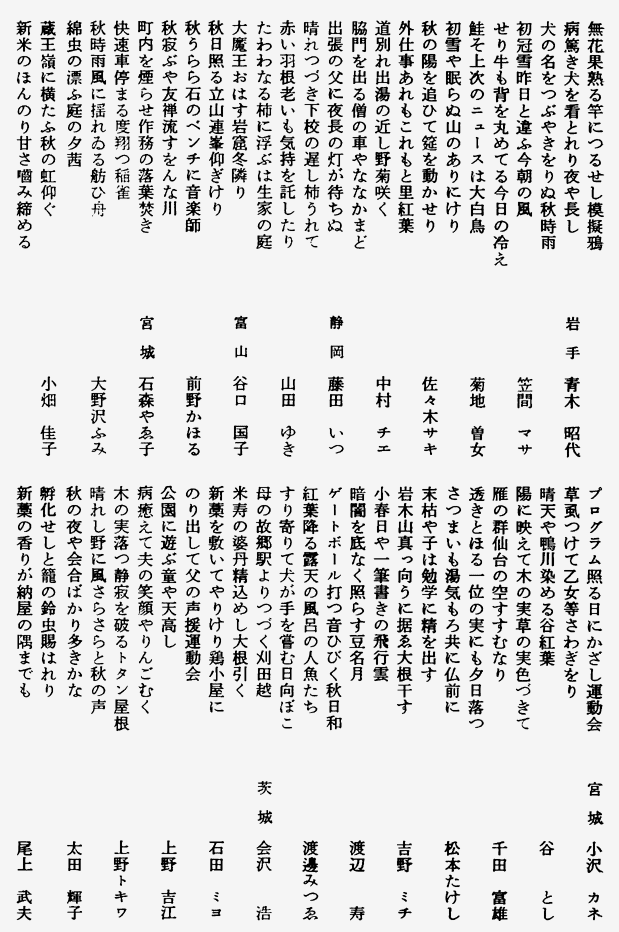 無花果熟る竿につるせし模擬鴉
病篤き犬を看とれり夜や長し
岩手 青木 昭代
犬の名をつぶやきをりぬ秋時雨
初冠雪昨日と違ふ今朝の風
笠間 マサ
せり牛も背を丸めてる今日の冷え
鮭そ上次のニュースは大白鳥
菊地 曽女
初雪や眠らぬ山のありにけり
秋の陽を追ひて筵を動かせり
佐々木サキ
外仕事あれもこれもと里紅葉
道別れ出湯の近し野菊咲く
中村 チエ
脇門を出る僧の車やななかまど
出張の父に夜長の灯が待ちぬ
静岡 藤田 いつ
晴れつづき下校の遅し柿うれて
赤い羽根老いも気持を託したり
山田 ゆき
たわわなる柿に浮ぶは生家の庭
大魔王おはす岩窟冬隣り
富山 谷口 国子
秋日照る立山連峯仰ぎけり
秋うらら石のベンチに音楽師
前野かほる
秋寂ぶや友禅流すをんな川
町内を煙らせ作務の落葉焚き
宮城 石森やゑ子
快速車停まる度翔つ稲雀
秋時雨風に揺れゐる舫ひ舟
大野沢ふみ
綿虫の漂ふ庭の夕茜
蔵王嶺に横たふ秋の虹仰ぐ
小畑 佳子
新米のほんのり甘さ噛み締める
プログラム照る日にかざし運動会
宮城 小沢 カネ
草虱つけて乙女等さわぎをり
晴天や鴨川染める谷紅葉
谷 とし
陽に映えて木の実草の実色づきて
雁の群仙台の空すすむなり
千田 富雄
透きとほる一位の実にも夕日落つ
さつまいも湯気もろ共に仏前に
松本たけし
末枯や子は勉学に精を出す
岩木山真っ向うに据ゑ大根干す
吉野 ミチ
小春日や一筆書きの飛行雲
暗闇を底なく照らす豆名月
渡辺 寿
ゲートボール打つ音ひびく秋日和
紅葉降る露天の風呂の人魚たち
渡邊みつゑ
すり寄りて犬が手を嘗む日向ぼこ
母の故郷駅よりつづく刈田越
茨城 会沢 浩
米寿の婆丹精込めし大根引く
新藁を敷いてやりけり鶏小屋に
石田 ミヨ
のり出して父の声援運動会
公園に遊ぶ童や天高し
上野 吉江
病癒えて夫の笑顔やりんごむく
木の実落つ静寂を破るトタン屋根
上野トキワ
晴れし野に風さらさらと秋の声
秋の夜や会合ばかり多きかな
太田 輝子
孵化せしと籠の鈴虫賜はれり
新藁の香りが納屋の隅までも
尾上 武夫